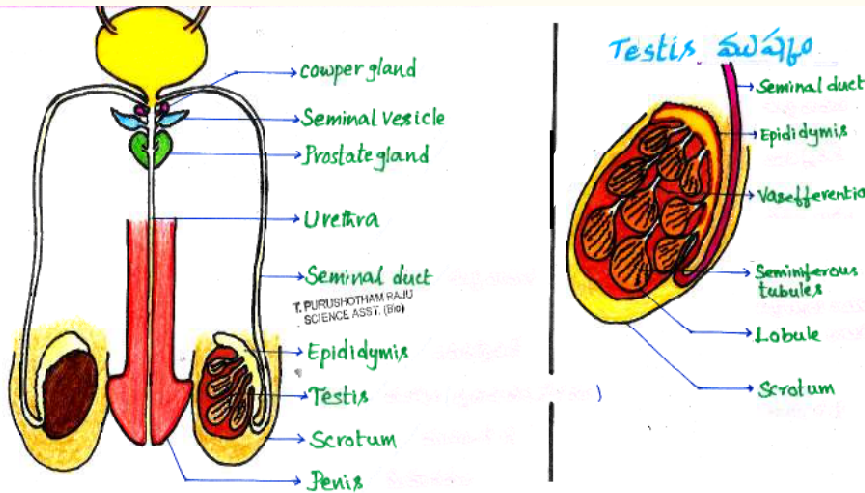 cowper gland
Seminal vesicle
Prostate gland
Urethra
Seminal duct
T. PURUSHOTHAM RAJU
SCIENCE ASST. (Bio)
Epididymis
Testis
Scrotum
Penis
Testis ముష్కం
Seminal duct
Epididymis
Vasefferentia
Seminiferous
tubules
Lobule
Scrotum